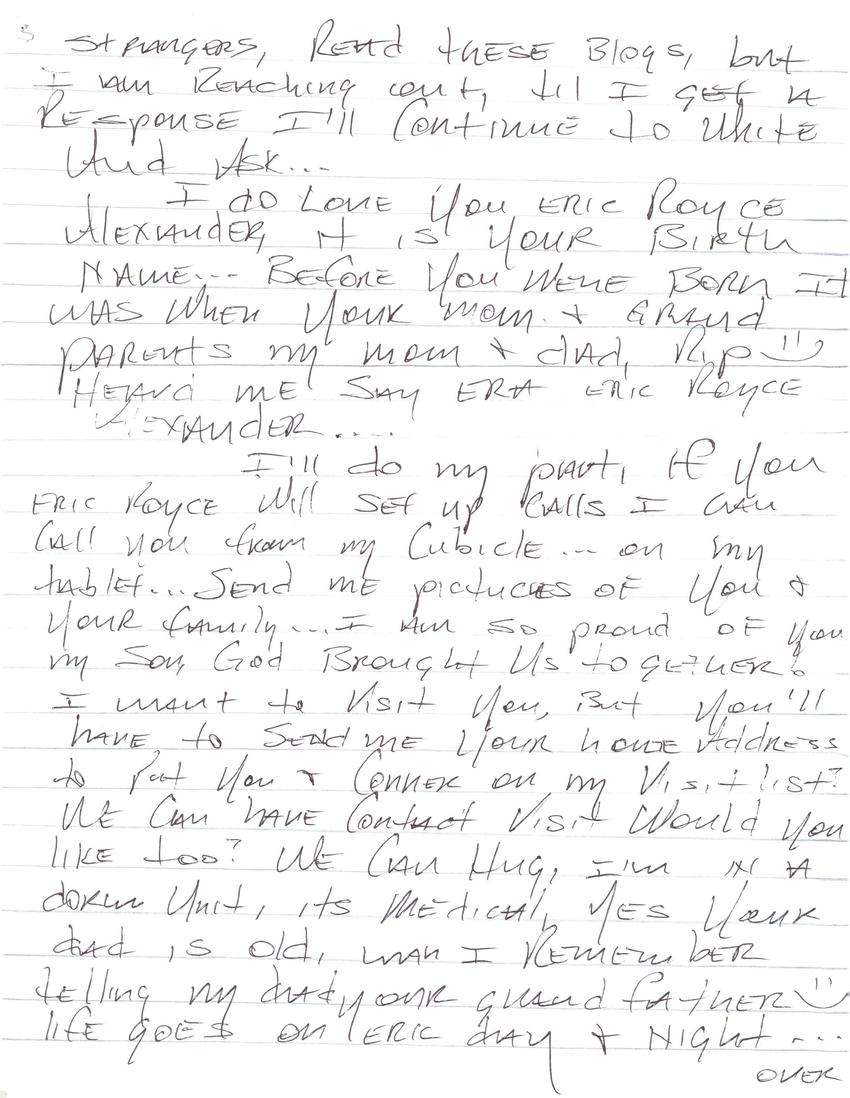 3
STRANGERS, READ THESE Blogs, but
I AM REACHing out, til I GET A
RESPONSE I'll CONTINUE to WRITE
And ASK...
I do LOVE YOU ERIC ROYCE
ALEXANDER, it is YOUR BIRTH
NAME... BEFORE YOU WERE BORN It
WAS WHEN YOUR mom & GRAND
PARENTS my mom & dAd, R.I.P
HEARd ME SAY ERIC ROYCE
ALEXANDER....
I'll do my part, IF you
ERIC ROYCE Will SET up CAlls I CAN
CAll you from my CubiclE... on my
tablet... Send ME picturES OF You &
YOUR family... I AM so proud OF you
my Son, God BROUGHT US toGETHER!
I WANT to Visit You, But You'll
have to SENd me YOUR home AddRESS
to Put You & CONNER on my Visit list?
WE CAN HAVE Contact Visit Would you
like too? WE CAN Hug, I'm IN A
dorm Unit, its MEdicAl, YES YOUR
dAd is old, man I REMEMBER
tElling my dad, your GRANd fATHER
lifE GOES on ERIC dAy & NIGHt...
OVER